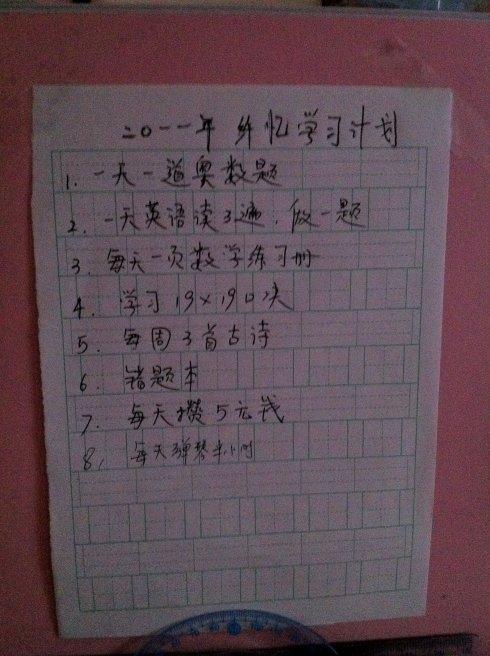 二〇一一年 学习计划
1. 一天一道奥数题
2. 一天英语读3遍，做一题
3. 每天一页数学练习册
4. 学习19×19口决
5. 每周3首古诗
6. 错题本
7. 每天攒5元钱
8. 每天弹琴半小时